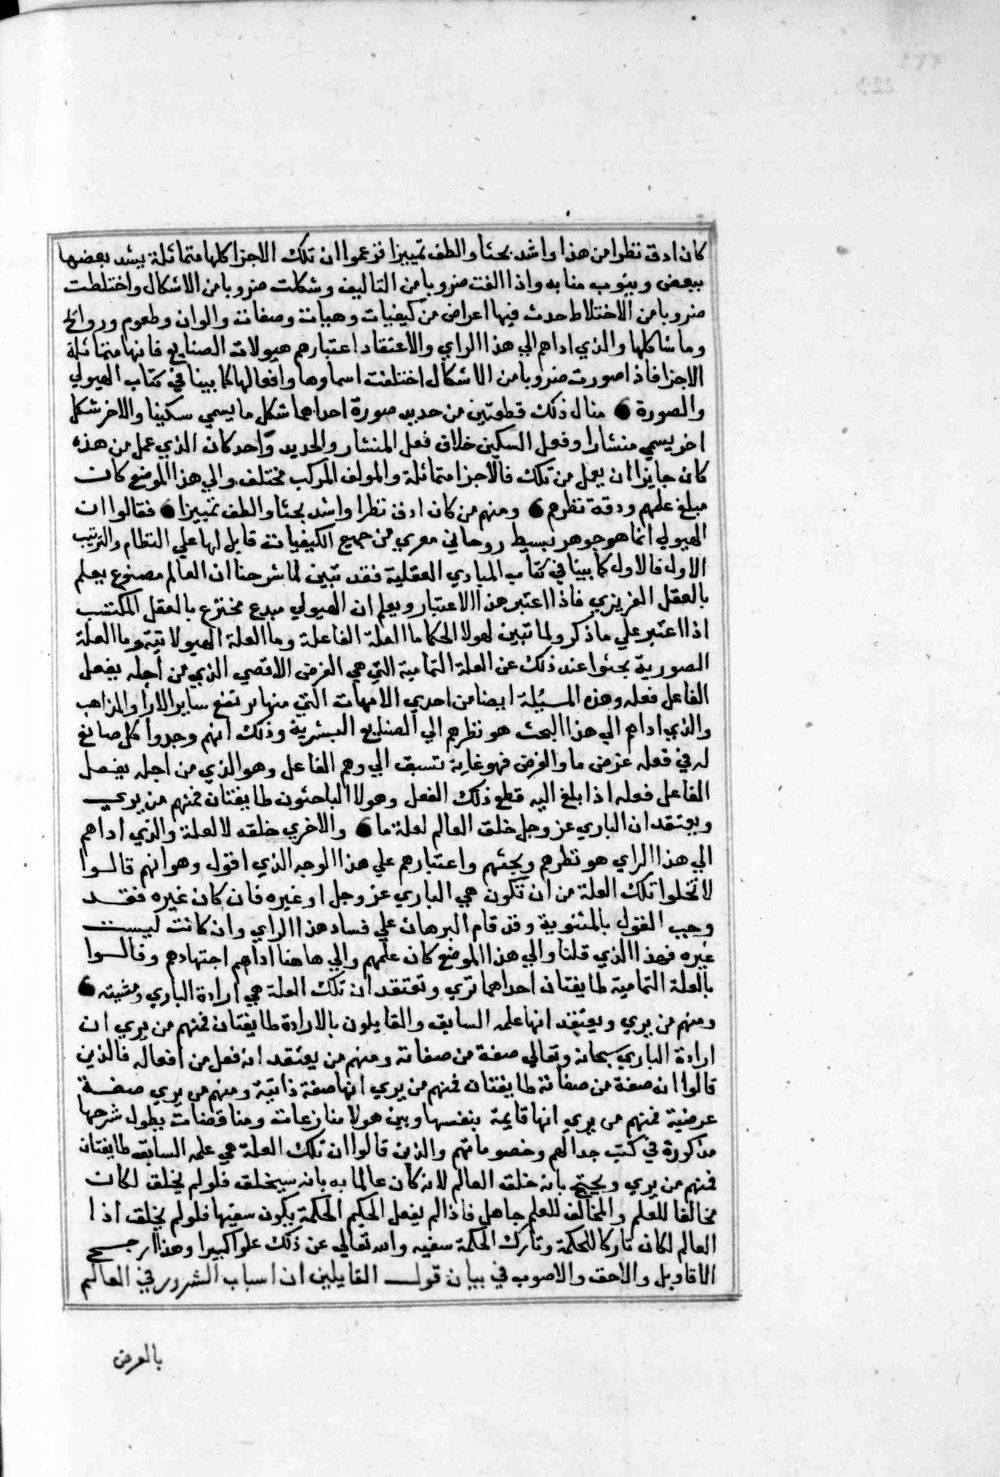 كان ادق نظرا من هذا واشد بحثا والطف تمييزا فزعموا ان تلك الاجزا كلها متماثلة يشد بعضها
ببعض وينوب منابه واذا الفت ضروبا من التاليف وشكلت ضروبا من الاشكال واختلطت
ضروبا من الاختلاط حدث فيها اعراض من كيفيات وهيات وصفات والوان وطعوم وروائح
وما شاكلها والذي اداهم الي هذا الراي والاعتقاد اعتبارهم هيولات الصنايع فانها متماثلة
الاجزا فاذا صورت ضروبا من الاشكال اختلفت اسماوها وافعالها كما بينا في كتاب الهيولي
والصورة مثال ذلك قطعتين من حديد صورة احداهما شكل ما يسمي سكينا والاخر شكل
اخر يسمي منشارا وفعل السكين خلاف فعل المنشار والحديد واحد كان الذي عمل من هذه
كان جايزا ان يعمل من تلك فالاجزا متماثلة والمولف المركب مختلف والي هذا الموضع كان
مبلغ علمهم ودقة نظرهم ومنهم من كان ادق نظرا واشد بحثا والطف تمييزا فقالوا ان
الهيولي انما هو جوهر بسيط روحاني معري من جميع الكيفيات قابل لها علي النظام والترتيب
الاول فالاول كما بينا في كتاب المبادي العقلية فقد تبين لما شرحنا ان العالم مصنوع يعلم
بالعقل الغريزي فاذا اعتبر هذا الاعتبار ويعلم ان الهيولي مبدع مخترع بالعقل المكتسب
اذا اعتبر علي ما ذكر ولما تبين لهولا الحكما ما العلة الفاعلة وما العلة الهيولانية وما العلة
الصورية بحثوا عند ذلك عن العلة التمامية التي هي الغرض الاقصي الذي من اجله يفعل
الفاعل فعله وهذه المسئلة ايضا من احدي الامهات التي منها يرتفع ساير الارا والمذاهب
والذي اداهم الي هذا البحث هو نظرهم الي الصنايع البشرية وذلك انهم وجدوا كل صانع
له في فعله غرض ما والغرض فهو غاية تسبق الي وهم الفاعل وهو الذي من اجله يفعل
الفاعل فعله اذا بلغ اليه قطع ذلك الفعل وهولا الباحثون طايفتان فمنهم من يري
ويعتقد ان الباري عز وجل خلق العالم لعلة ما والاخري خلقه لا لعلة والذي اداهم
الي هذا الراي هو نظرهم وبحثهم واعتبارهم علي هذا الوجه الذي اقول وهو انهم قالوا
لا تخلوا تلك العلة من ان تكون هي الباري عز وجل او غيره فان كان غيره فقد
وجب القول بالمثنوية وقد قام البرهان علي فساد هذا الراي وان كانت ليست
غيره فهذا الذي قلنا والي هذا الموضع كان علمهم والي هاهنا اداهم اجتهادهم وقالوا
بالعلة التمامية طايفتان احداهما تري وتعتقد ان تلك العلة هي ارادة الباري ومشيته
ومنهم من يري ويعتقد انها علمه السابق والقايلون بالارادة طايفتان فمنهم من يري ان
ارادة الباري سبحانه وتعالي صفة من صفاته ومنهم من يعتقد انه فعل من افعاله فالذين
قالوا انه صفة من صفاته طايفتان فمنهم من يري انها صفة ذاتية ومنهم من يري صفة
عرضية فمنهم من يري انها قايمة بنفسها وبين هولا منازعات ومناقضات يطول شرحها
مذكورة في كتب جدالهم وخصوماتهم والذين قالوا ان تلك العلة هي علمه السابق طايفتان
فمنهم من يري ويحتج بانه خلق العالم لانه كان عالما به بانه سيخلقه فلو لم يخلق لكان
مخالفا للعلم والمخالف للعلم جاهل فاذا لم يفعل الحكيم الحكمة يكون سفيها فلو لم يخلق اذا
العالم لكان تاركا للحكمة وتارك الحكمة سفيه والله تعالي عن ذلك علوا كبيرا وهذا ارجح
الاقاويل والاحق والاصوب في بيان قول القايلين ان اسباب الشرور في العالم
بالعرض